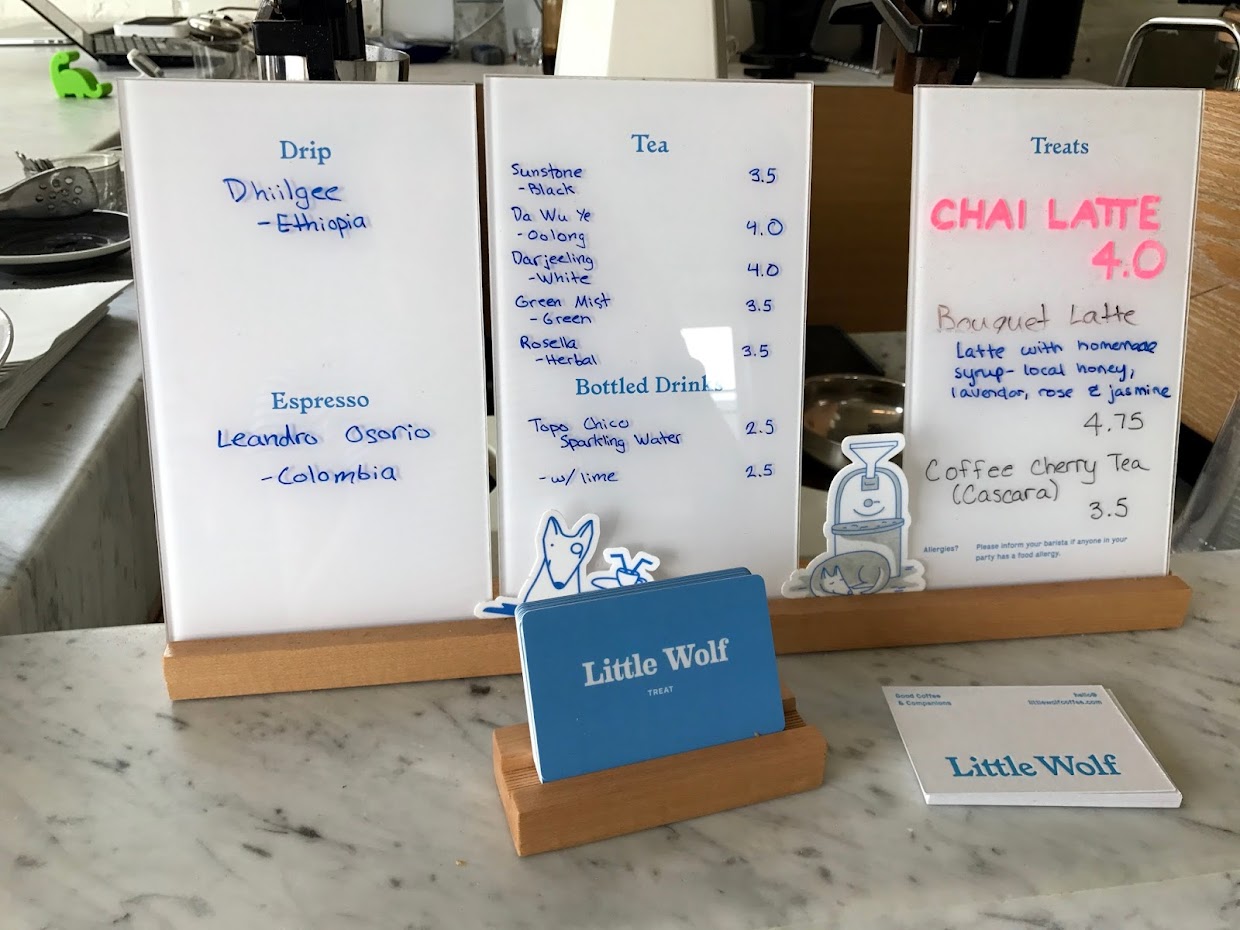 Drip
Dhiilgee
-Ethiopia
Espresso
Leandro Osorio
-Colombia
Tea
Sunstone 3.5
-Black
Da Wu Ye 4.0
-Oolong
Darjeeling 4.0
-White
Green Mist 3.5
-Green
Rosella 3.5
-Herbal
Bottled Drinks
Topo Chico 2.5
Sparkling Water
-w/ lime 2.5
Treats
CHAI LATTE
4.0
Bouquet Latte
Latte with homemade
syrup- local honey,
lavendar, rose & jasmine
4.75
Coffee Cherry Tea
(Cascara)
3.5
Allergies? Please inform your barista if anyone in your
party has a food allergy.
Little Wolf
TREAT
Good Coffee
& Companions
hello@
littlewolfcoffee.com
Little Wolf